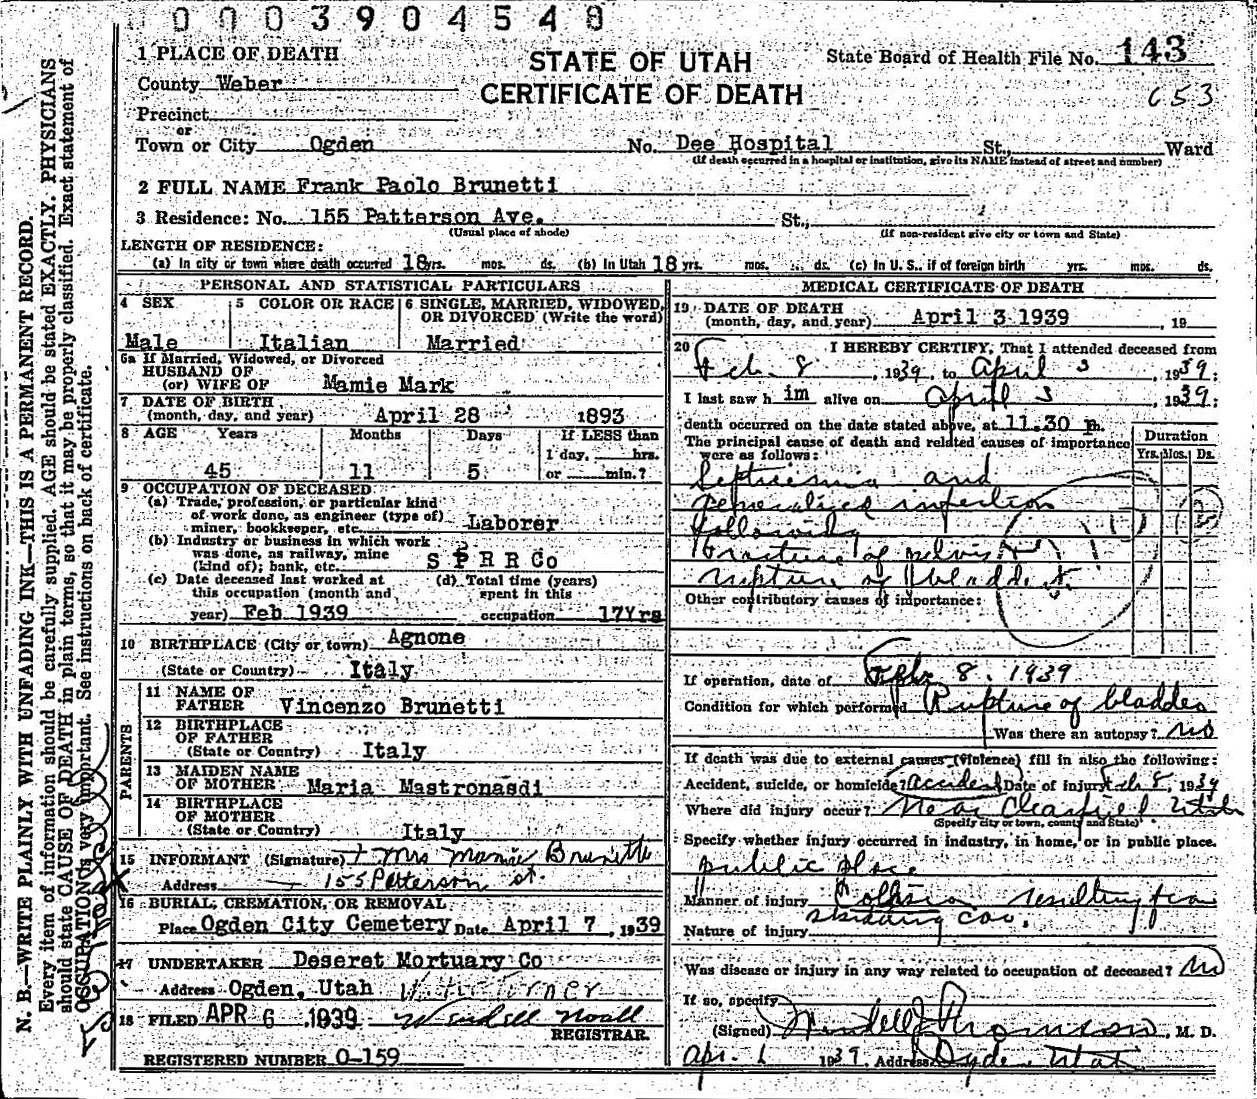 0003904548
1 PLACE OF DEATH
STATE OF UTAH
CERTIFICATE OF DEATH
State Board of Health File No. 143
653
County Weber
Precinct
or
Town or City Ogden No. Dee Hospital St., Ward
(If death occurred in a hospital or institution, give its NAME instead of street and number)
2 FULL NAME Frank Paolo Brunetti
3 Residence: No. 155 Patterson Ave. St.,
(Usual place of abode) (If non-resident give city or town and State)
LENGTH OF RESIDENCE:
(a) In city or town where death occurred 18 yrs. mos. ds. (b) In Utah 18 yrs. mos. ds. (c) In U. S., if of foreign birth yrs. mos. ds.
PERSONAL AND STATISTICAL PARTICULARS
4 SEX 5 COLOR OR RACE 6 SINGLE, MARRIED, WIDOWED, OR DIVORCED (Write the word)
Male Italian Married
6a If Married, Widowed, or Divorced
HUSBAND OF
(or) WIFE OF Mamie Mark
7 DATE OF BIRTH
(month, day, and year) April 28 1893
8 AGE Years Months Days If LESS than
1 day, hrs.
45 11 5 or min.?
9 OCCUPATION OF DECEASED
(a) Trade, profession, or particular kind
of work done, as engineer (type of)
miner, bookkeeper, etc. Laborer
(b) Industry or business in which work
was done, as railway, mine
(kind of); bank, etc. S P R R Co
(c) Date deceased last worked at
this occupation (month and
year) Feb 1939
(d) Total time (years)
spent in this
occupation 17Yrs
10 BIRTHPLACE (City or town) Agnone
(State or Country) Italy
PARENTS
11 NAME OF
FATHER Vincenzo Brunetti
12 BIRTHPLACE
OF FATHER
(State or Country) Italy
13 MAIDEN NAME
OF MOTHER Maria Mastronasdi
14 BIRTHPLACE
OF MOTHER
(State or Country) Italy
15 INFORMANT (Signature) Mrs Mamie Brunetti
Address 155 Patterson st.
16 BURIAL, CREMATION, OR REMOVAL
Place Ogden City Cemetery Date April 7, 1939
17 UNDERTAKER Deseret Mortuary Co
Address Ogden, Utah
18 FILED APR 6 1939 Wendell Noall
REGISTRAR
REGISTERED NUMBER 0-159
MEDICAL CERTIFICATE OF DEATH
19 DATE OF DEATH
(month, day, and year) April 3 1939, 19
20 I HEREBY CERTIFY, That I attended deceased from
Feb. 8, 1939, to April 3, 1939;
I last saw h im alive on April 3, 1939;
death occurred on the date stated above, at 11.30 p.m.
The principal cause of death and related causes of importance
were as follows:
Duration
Yrs. Mos. Ds.
Septicemia and
generalized infection
following
fracture of pelvis
rupture of bladder.
Other contributory causes of importance:
If operation, date of Feb. 8. 1939
Condition for which performed Rupture of bladder
Was there an autopsy? No
If death was due to external causes (violence) fill in also the following:
Accident, suicide, or homicide? accident Date of injury Feb 8, 1939
Where did injury occur? Near Clearfield Utah
(Specify city or town, county and State)
Specify whether injury occurred in industry, in home, or in public place.
public place
Manner of injury Collision resulting from
skidding car.
Nature of injury
Was disease or injury in any way related to occupation of deceased? No
If so, specify
(Signed) Wendell J Thomson, M. D.
Apr. 1 1939. Address Ogden Utah
N. B.—WRITE PLAINLY WITH UNFADING INK—THIS IS A PERMANENT RECORD.
Every item of information should be carefully supplied. AGE should be stated EXACTLY. PHYSICIANS
should state CAUSE OF DEATH in plain terms, so that it may be properly classified. Exact statement of
OCCUPATION is very important. See instructions on back of certificate.